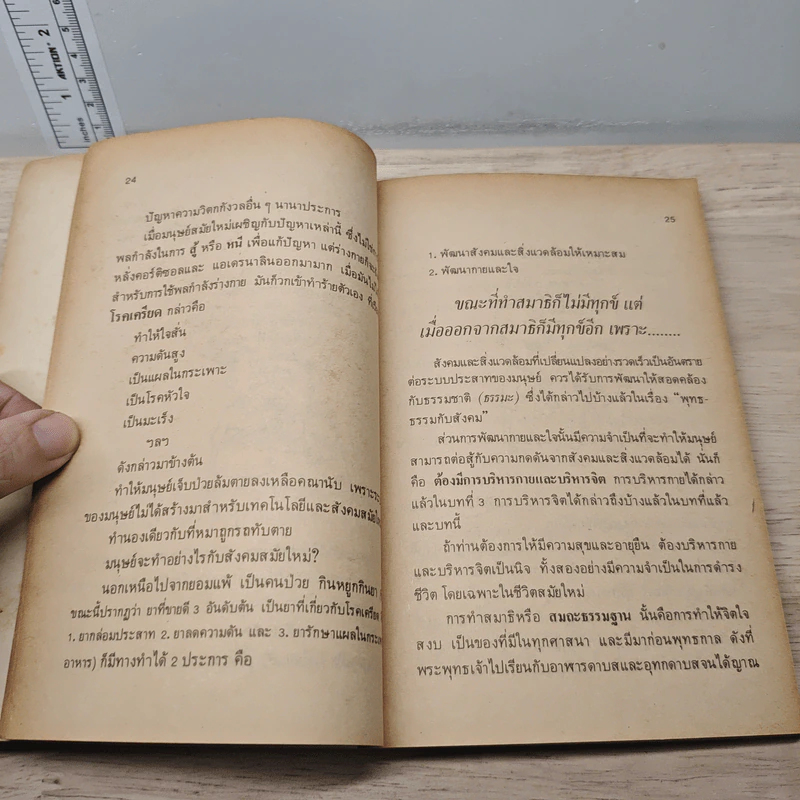 AKTION
inches
1
2
1
2
3
4
5
6
24
ปัญหาความวิตกกังวลอื่น ๆ นานาประการ
เมื่อมนุษย์สมัยใหม่เผชิญกับปัญหาเหล่านี้ ซึ่งไม่ใช่
พลกำลังในการ สู้ หรือ หนี เพื่อแก้ปัญหา แต่ร่างกายก็
หลั่งคอร์ติซอลและ แอเดรนาลินออกมามาก เมื่อมันไม่
สำหรับการใช้พลกำลังร่างกาย มันก็วกเข้าทำร้ายตัวเอง
โรคเครียด กล่าวคือ
ทำให้ใจสั่น
ความดันสูง
เป็นแผลในกระเพาะ
เป็นโรคหัวใจ
เป็นมะเร็ง
ฯลฯ
ดังกล่าวมาข้างต้น
ทำให้มนุษย์เจ็บป่วยล้มตายลงเหลือคณานับ เพราะ
ของมนุษย์ไม่ได้สร้างมาสำหรับเทคโนโลยีและสังคมสมัย
ทำนองเดียวกับที่หมาถูกรถทับตาย
มนุษย์จะทำอย่างไรกับสังคมสมัยใหม่?
นอกเหนือไปจากยอมแพ้ เป็นคนป่วย กินหยูกกินยา
ขณะนี้ปรากฏว่า ยาที่ขายดี 3 อันดับต้น เป็นยาที่เกี่ยวกับโรคเครียด
1. ยากล่อมประสาท 2. ยาลดความดัน และ 3. ยารักษาแผลในกระเพาะ
อาหาร) ก็มีทางทำได้ 2 ประการ คือ
25
1. พัฒนาสังคมและสิ่งแวดล้อมให้เหมาะสม
2. พัฒนากายและใจ
ขณะที่ทำสมาธิก็ไม่มีทุกข์ แต่
เมื่อออกจากสมาธิก็มีทุกข์อีก เพราะ........
สังคมและสิ่งแวดล้อมที่เปลี่ยนแปลงอย่างรวดเร็วเป็นอันตราย
ต่อระบบประสาทของมนุษย์ ควรได้รับการพัฒนาให้สอดคล้อง
กับธรรมชาติ (ธรรมะ) ซึ่งได้กล่าวไปบ้างแล้วในเรื่อง “พุทธ-
ธรรมกับสังคม”
ส่วนการพัฒนากายและใจนั้นมีความจำเป็นที่จะทำให้มนุษย์
สามารถต่อสู้กับความกดดันจากสังคมและสิ่งแวดล้อมได้ นั่นก็
คือ ต้องมีการบริหารกายและบริหารจิต การบริหารกายได้กล่าว
แล้วในบทที่ 3 การบริหารจิตได้กล่าวถึงบ้างแล้วในบทที่แล้ว
และบทนี้
ถ้าท่านต้องการให้มีความสุขและอายุยืน ต้องบริหารกาย
และบริหารจิตเป็นนิจ ทั้งสองอย่างมีความจำเป็นในการดำรง
ชีวิต โดยเฉพาะในชีวิตสมัยใหม่
การทำสมาธิหรือ สมถะธรรมฐาน นั้นคือการทำให้จิตใจ
สงบ เป็นของที่มีในทุกศาสนา และมีมาก่อนพุทธกาล ดังที่
พระพุทธเจ้าไปเรียนกับอาฬารดาบสและอุทกดาบสจนได้ญาณ